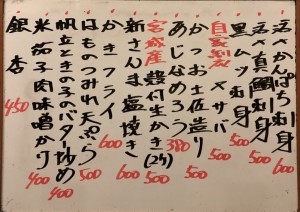 活〆かんぱち刺身 600
活〆真鯛刺身 500
黒ムツ刺身 500
自家製〆サバ 500
かつお土佐造り 500
あじなめろう 380
宮城産 殻付生かき(2ケ) 500
新さんま塩焼き 500
かきフライ 600
はものつみれ天ぷら 500
帆立ときの子のバター炒め 400
米茄子肉味噌かけ 400
銀杏 450